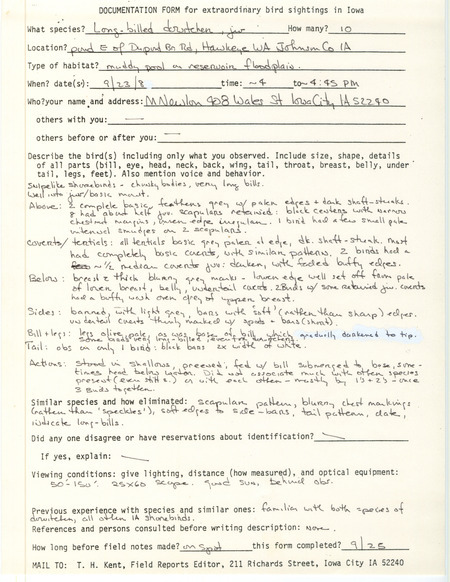 DOCUMENTATION FORM for extraordinary bird sightings in Iowa
What species? Long-billed dowitcher, juv How many? 10
Location? pond E of Dupont Rd, Hawkeye WA Johnson Co IA
Type of habitat? muddy pool on reservoir floodplain.
When? date(s): 9/23/8 time: ~4 to ~4:45 PM
Who? your name and address: M Newlon 408 Wales St Iowa City IA 52240
others with you:
others before or after you:
Describe the bird(s) including only what you observed. Include size, shape, details
of all parts (bill, eye, head, neck, back, wing, tail, throat, breast, belly, under
tail, legs, feet). Also mention voice and behavior.
Snipelike shorebirds - chunky bodies, very long bills.
Well into juv/basic moult.
Above: 2 complete basic, feathers grey w/ pale edges + dark shaft-streaks.
8 had about half juv scapulars retained: black centers with narrow
chestnut margins, inner edge irregular. 1 bird had a few small pale
internal smudges on 2 scapulars.
Coverts/tertials: all tertials basic grey pale edge, dk. shaft-streak. most
had completely basic coverts, with similar pattern. 2 birds had a
~1/2 median coverts juv: darker, with faded buffy edges.
Below: breast thick blurry grey marks - lower edge well set off from pale
of lower breast, belly, undertail coverts. 2 birds w/ some retained juv. coverts
had a buffy wash over grey of upper breast.
Sides: banded, with light grey, bars with soft (rather than sharp) edges.
undertail coverts thinly marked w/ spots + bars (short).
Bill + legs: legs olive pale, as was base of bill which gradually darkened to tip.
Some birds very long-billed, even for dowitchers.
Tail: obs on only 1 bird: black bars 2x width of white.
Actions: stood in shallows, preened, fed w/ bill submerged to base, some-
times head below water. did not associate much with other species
present (even stilts) or with each other - mostly by 1's + 2's - once
3 birds together.
Similar species and how eliminated: scapulars pattern, blurry chest markings
(rather than 'speckles'), soft edges to side-bars, tail pattern, date,
indicate long-bills.
Did any one disagree or have reservations about identification?
If yes, explain:
Viewing conditions: give lighting, distance (how measured), and optical equipment:
50'-150'. 25x60 scope. good sun, behind obs.
Previous experience with species and similar ones: familiar with both species of
dowitcher, all other IA shorebirds.
References and persons consulted before writing description: none.
How long before field notes made? on spot this form completed? 9/25
MAIL TO: T. H. Kent, Field Reports Editor, 211 Richards Street, Iowa City IA 52240